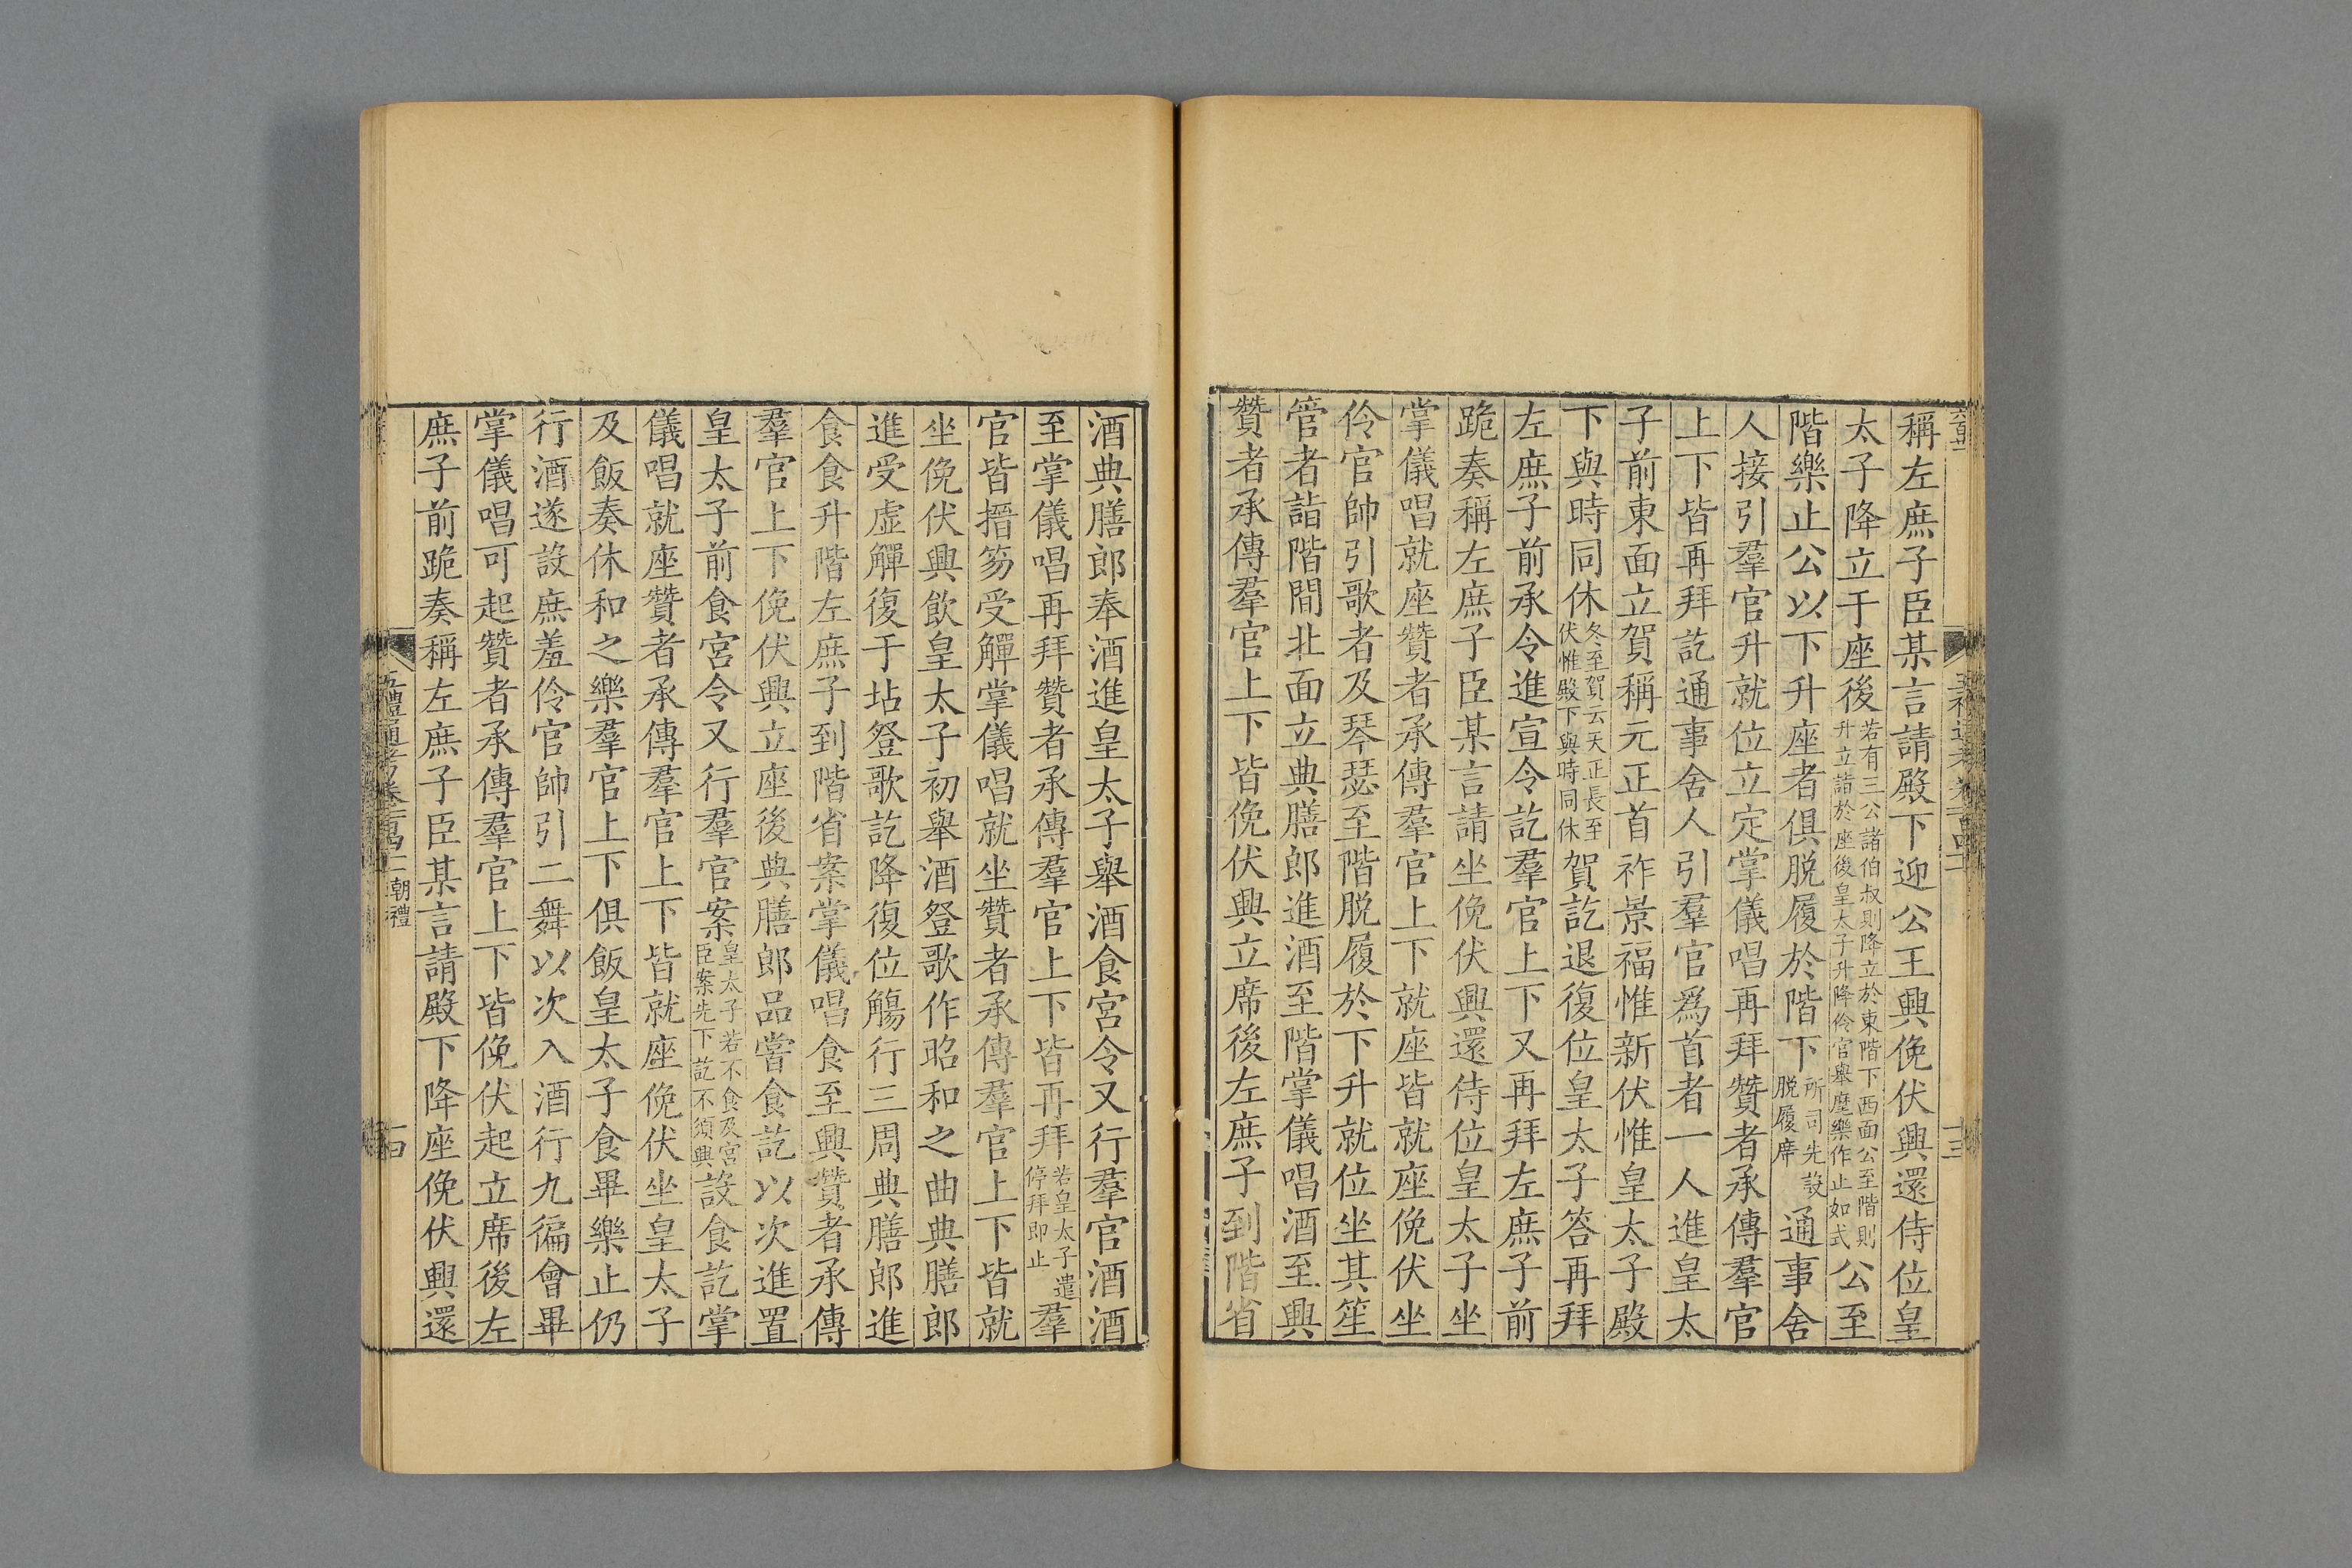 稱左庶子臣某言請殿下迎公王興俛伏興還侍位皇
太子降立于座後若有三公諸伯叔則降立於東階下西面公至階則升立詣於座後皇太子升降伶官舉麾樂作止如式公至
階樂止公以下升座者俱脱履於階下所司先設脱履席通事舍
人接引羣官升就位立定掌儀唱再拜贊者承傳羣官
上下皆再拜訖通事舍人引羣官爲首者一人進皇太
子前東面立賀稱元正首祚景福惟新伏惟皇太子殿
下與時同休冬至賀云天正長至伏惟殿下與時同休賀訖退復位皇太子答再拜
左庶子前承令進宣令訖羣官上下又再拜左庶子前
跪奏稱左庶子臣某言請坐俛伏興還侍位皇太子坐
掌儀唱就座贊者承傳羣官上下就座皆就座俛伏坐
伶官帥引歌者及琴瑟至階脱履於下升就位坐其笙
管者詣階間北面立典膳郎進酒至階掌儀唱酒至興
贊者承傳羣官上下皆俛伏興立席後左庶子到階省
酒典膳郎奉酒進皇太子舉酒食宮令又行羣官酒酒
至掌儀唱再拜贊者承傳羣官上下皆再拜若皇太子遣停拜即止羣
官皆搢笏受觶掌儀唱就坐贊者承傳羣官上下皆就
坐俛伏興飲皇太子初舉酒登歌作昭和之曲典膳郎
進受虛觶復于坫登歌訖降復位觴行三周典膳郎進
食食升階左庶子到階省案掌儀唱食至興贊者承傳
羣官上下俛伏興立座後典膳郎品嘗食訖以次進置
皇太子前食宮令又行羣官案皇太子若不食及宮臣案先下訖不須興設食訖掌
儀唱就座贊者承傳羣官上下皆就座俛伏坐皇太子
及飯奏休和之樂羣官上下俱飯皇太子食畢樂止仍
行酒遂設庶羞伶官帥引二舞以次入酒行九徧會畢
掌儀唱可起贊者承傳羣官上下皆俛伏起立席後左
庶子前跪奏稱左庶子臣某言請殿下降座俛伏興還
朝禮